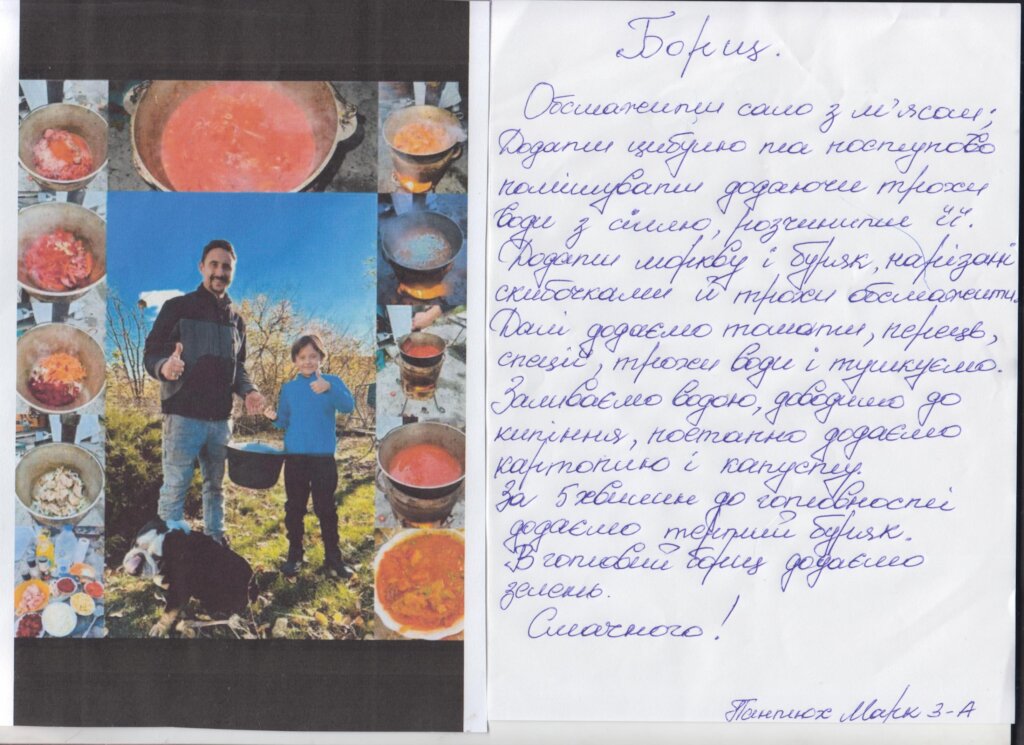 Борщ.
Обсмажити сало з м'ясом;
Додати цибулю та поступово
помішувати додаючи трохи
води з сіллю, розчинити її.
Додати моркву і буряк, нарізані
скибочками й трохи обсмажити.
Далі додаємо томати, перець,
спеції, трохи води і тушкуємо.
Заливаємо водою, доводимо до
кипіння, поетапно додаємо
картоплю і капусту.
За 5 хвилин до готовності
додаємо тертий буряк.
В готовий борщ додаємо
зелень.
Смачного!
Марк 3-А